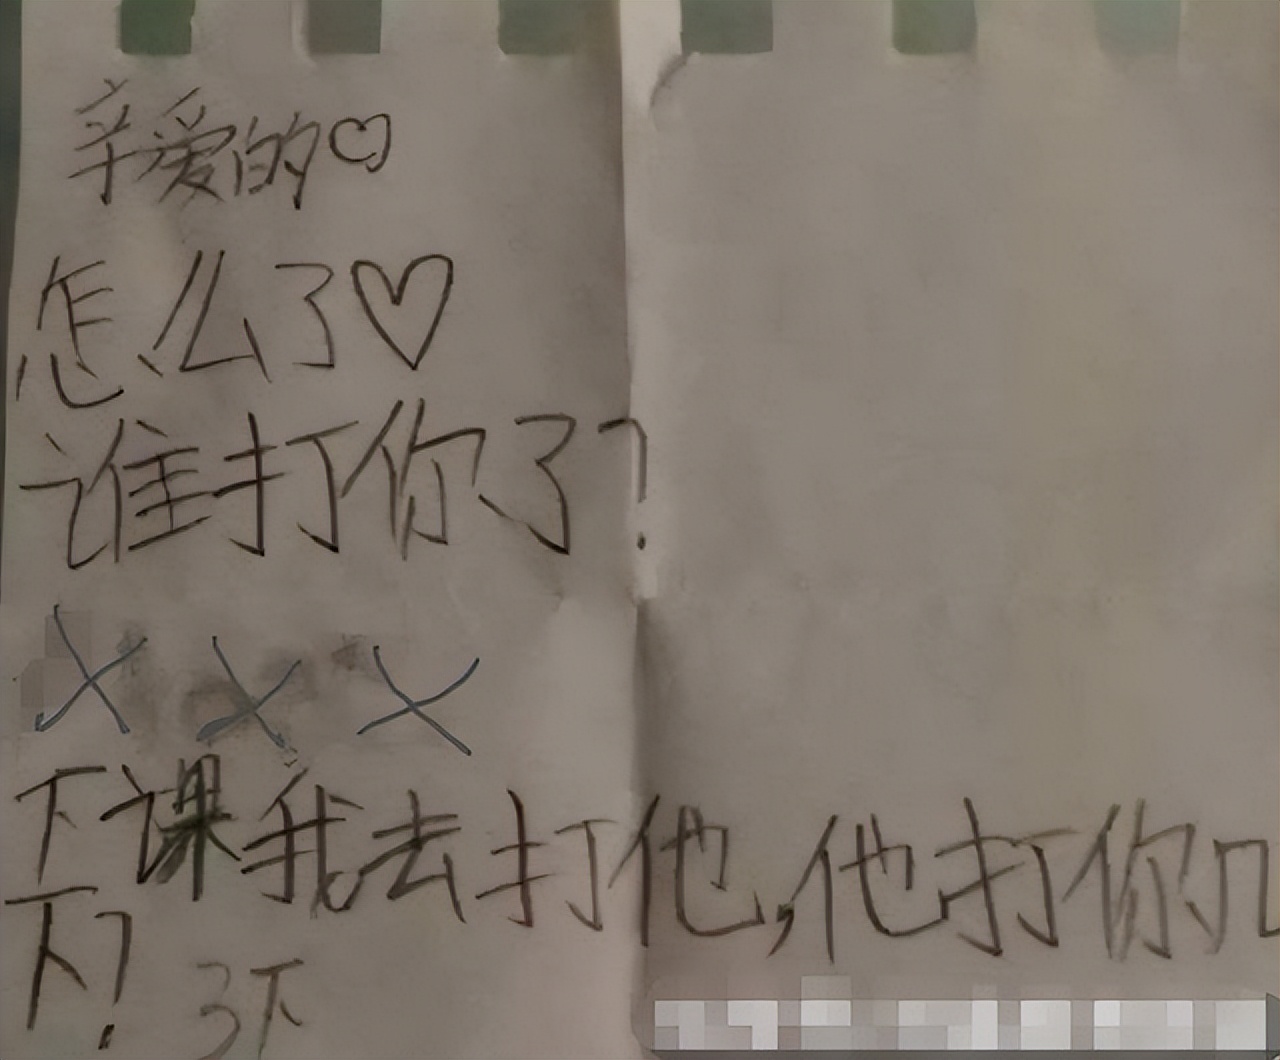 亲爱的♡
怎么了♡
谁打你了?
XXX
下课我去打他,他打你几
下?
3下